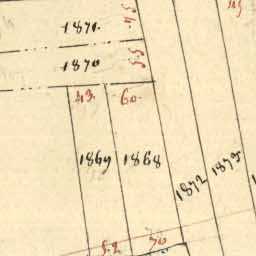 1871.
54
1870
55
43.
60.
1869
1868
1872
1873
52
70